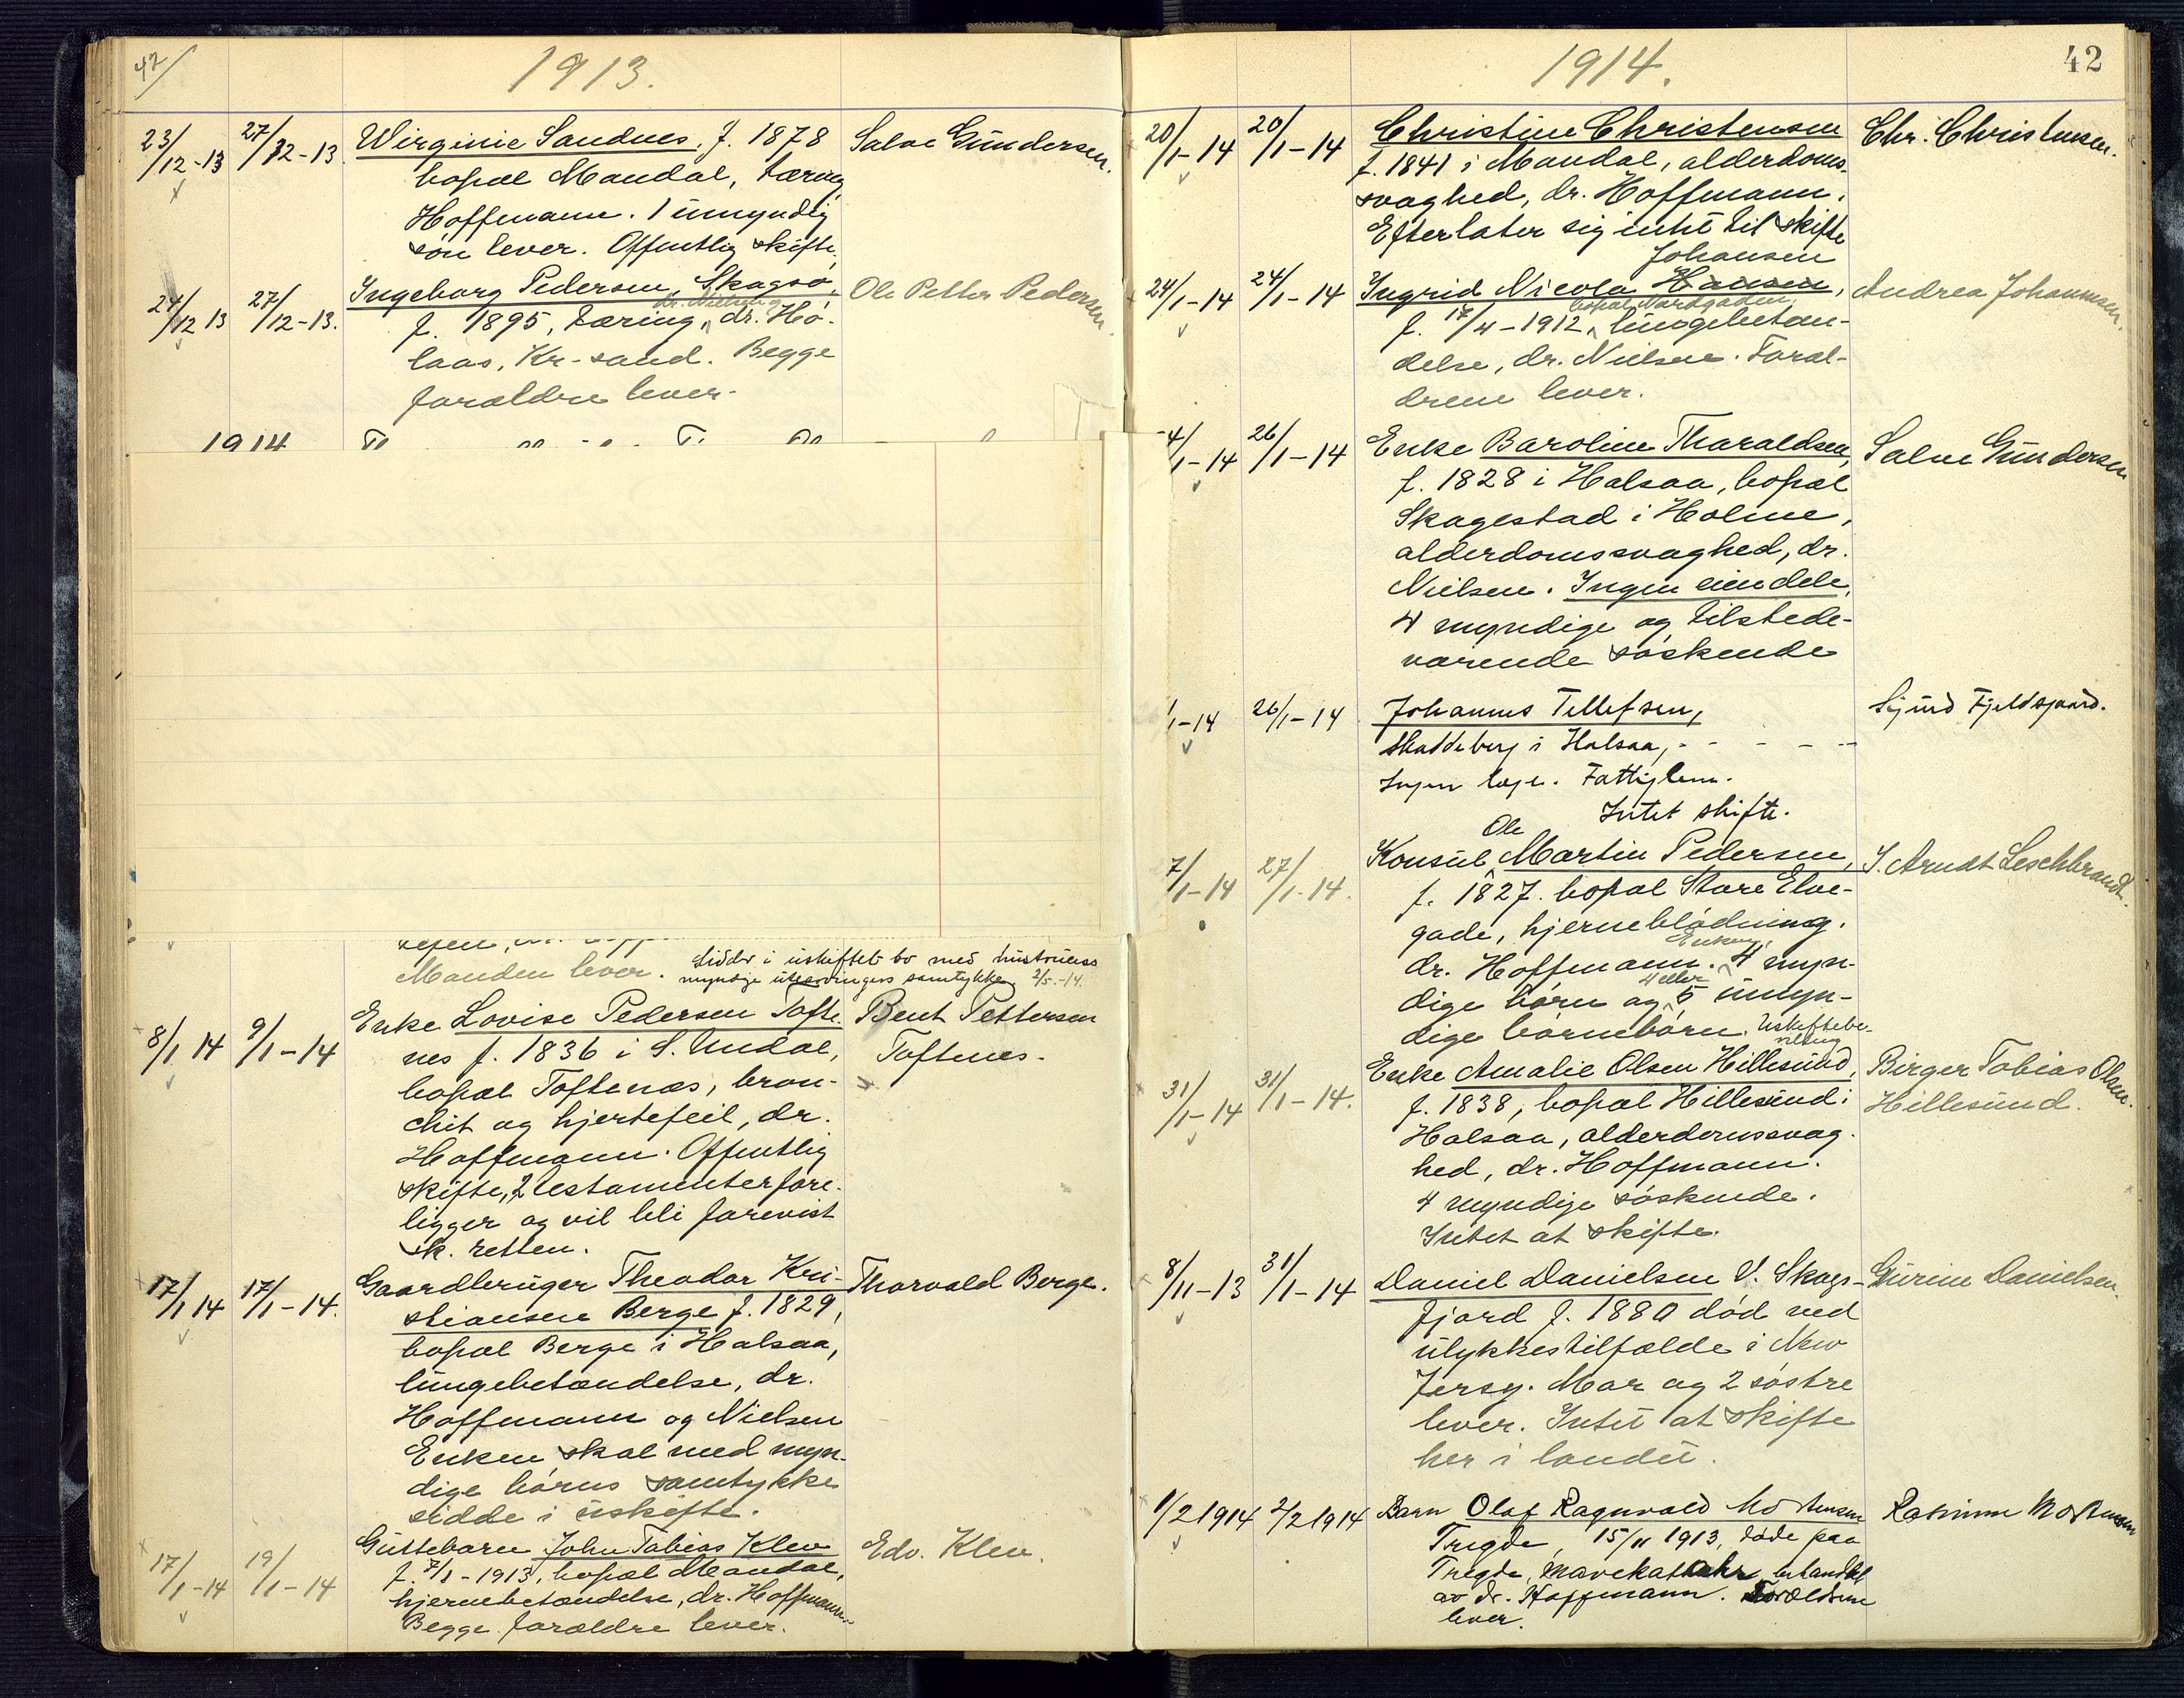 47/
1913.
23/12-13 27/12-13. Wirginie Sandnes, f. 1878 Salve Gundersen.
bopæl Mandal, tæring,
Hoffmann. 1 umyndig
søn lever. Offentlig skifte.
24/12 13 27/12-13. Ingeborg Pedersen, Skagsø, Ole Petter Pedersen
dr. Nielsen og
f. 1895, tæring, dr. Hø-
laas, Kr-sand. Begge
forældre lever.
1914
Manden lever. Sidder i uskiftet bo med hustruens
myndige utarvingers samtykke 2/5-14.
8/1 14 9/1-14 Enke Lovise Pedersen Tofte- Bent Pettersen
nes f. 1836 i S. Undal, Toftnes.
bopæl Toftenæs, bron-
chit og hjertefeil, dr.
Hoffmann. Offentlig
skifte, 2 testamenter fore-
ligger og vil bli forevist
sk. retten.
17/1 14 17/1-14. Gaardbruger Theodor Kri- Thorvald Berge.
stiansen Berge f. 1829,
bopæl Berge i Halsaa,
lungebetændelse, dr.
Hoffmann og Nielsen
Enken skal med myn-
dige børns samtykke
sidde i uskifte.
17/1-14 19/1-14 Guttebarn John Tobias Klev Edv. Klev.
f. 7/1-1913, bopæl Mandal,
hjernebetændelse, dr. Hoffmann.
Begge forældre lever.
1914.
42
20/1-14 20/1-14 Christine Christensen Chr. Christensen.
f. 1841 i Mandal, alderdoms-
svaghed, dr. Hoffmann.
Efterlater sig intet til skifte
Johansen
24/1-14 24/1-14 Ingrid Nicola Hansen, Andrea Johannsen.
bopæl Nordgaden,
f. 17/4-1912, lungebetæn-
delse, dr. Nielsen. Foræl-
drene lever.
4/1-14 26/1-14 Enke Baroline Tharaldsen, Salve Gundersen
f. 1828 i Halsaa, bopæl
Skagestad i Holme,
alderdomssvaghed, dr.
Nielsen. Ingen eiendele,
4 myndige og tilstede-
værende søskende
1/1-14 26/1-14 Johannes Tellefsen, Sigurd Fjeldsgaard.
Skaddeberg i Halsaa, - - - - -
Ingen læge. Fattiglem.
Intet skifte.
Ole
7/1-14 27/1-14. Konsul Martin Pedersen, J. Arndt Leschbrandt.
f. 1827. bopæl Store Elve-
gade, hjerneblødning.
Enken,
dr. Hoffmann. 4 myn-
4 eller
dige børn og 5 umyn-
dige børnebørn. Uskiftebe-
villing
31/1-14 31/1-14. Enke Amalie Olsen Hillesund, Birger Tobias Olsen
f. 1838, bopæl Hillesund i Hillesund.
Halsaa, alderdomssvag-
hed, dr. Hoffmann.
4 myndige søskende.
Intet at skifte.
8/11-13 31/1-14 Daniel Danielsen V. Skogs- Gurine Danielsen.
fjord f. 1880 død ved
ulykkestilfælde i New
Jersy. Mor og 2 søstre
lever. Intet at skifte
her i landet.
1/2 1914 2/2 1914 Barn Olaf Ragnvald Mortensen Rasmus Mortensen
Tregde, 15/11 1913, døde paa
Tregde, Mavekatahr, behandlet
av dr. Hoffmann. Forældrene
lever.